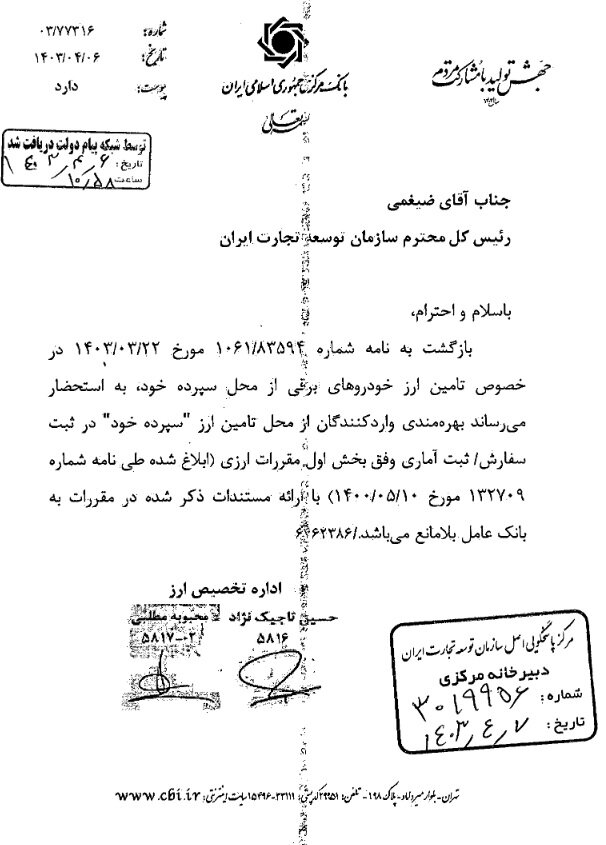 شماره: ۰۳/۷۷۳۱۶
تاریخ: ۱۴۰۳/۰۴/۰۶
پیوست: دارد
بانک مرکزی جمهوری اسلامی ایران
بسمه تعالی
جهش تولید با مشارکت مردم
توسط شبکه پیام دولت دریافت شد
تاریخ: ۱۴۰۳/۴/۶
ساعت ۱۰/۵۸
جناب آقای ضیغمی
رئیس کل محترم سازمان توسعه تجارت ایران
باسلام و احترام،
بازگشت به نامه شماره ۱۰۶۱/۸۳۵۹۴ مورخ ۱۴۰۳/۰۳/۲۲ در
خصوص تامین ارز خودروهای برقی از محل سپرده خود، به استحضار
می‌رساند بهره‌مندی واردکنندگان از محل تامین ارز "سپرده خود" در ثبت
سفارش/ ثبت آماری وفق بخش اول مقررات ارزی (ابلاغ شده طی نامه شماره
۱۳۲۷۰۹ مورخ ۱۴۰۰/۰۵/۱۰) با ارائه مستندات ذکر شده در مقررات به
بانک عامل بلامانع می‌باشد./۶۴۶۲۳۸۶
اداره تخصیص ارز
حسین تاجیک نژاد محبوبه مطلبی
۵۸۱۶ ۵۸۱۷-۰۲
مرکز پاسخگویی اصل سازمان توسعه تجارت ایران
دبیرخانه مرکزی
شماره: ۳۰۱۹۹۵۶
تاریخ: ۱۴۰۳/۴/۷
تهران-بلوار میرداماد-پلاک ۱۹۸- تلفن: ۲۹۹۵۱ کدپستی: ۳۳۱۱۱-۱۵۴۹۶ سایت اینترنتی: www.cbi.ir